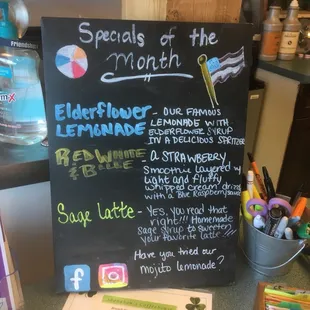 Specials of the
Month
Elderflower
LEMONADE
- OUR FAMOUS
LEMONADE WITH
ELDERFLOWER SYRUP
IN A DELICIOUS SPRITZER
RED WHITE
& BLUE
- A STRAWBERRY
Smoothie layered w/
light and fluffy
whipped cream drizzled
with a Blue Raspberry
Sage Latte
- Yes, you read that
right!!! Homemade
Sage syrup to sweeten
your favorite latte!!!
Have you tried our
mojito lemonade?
f